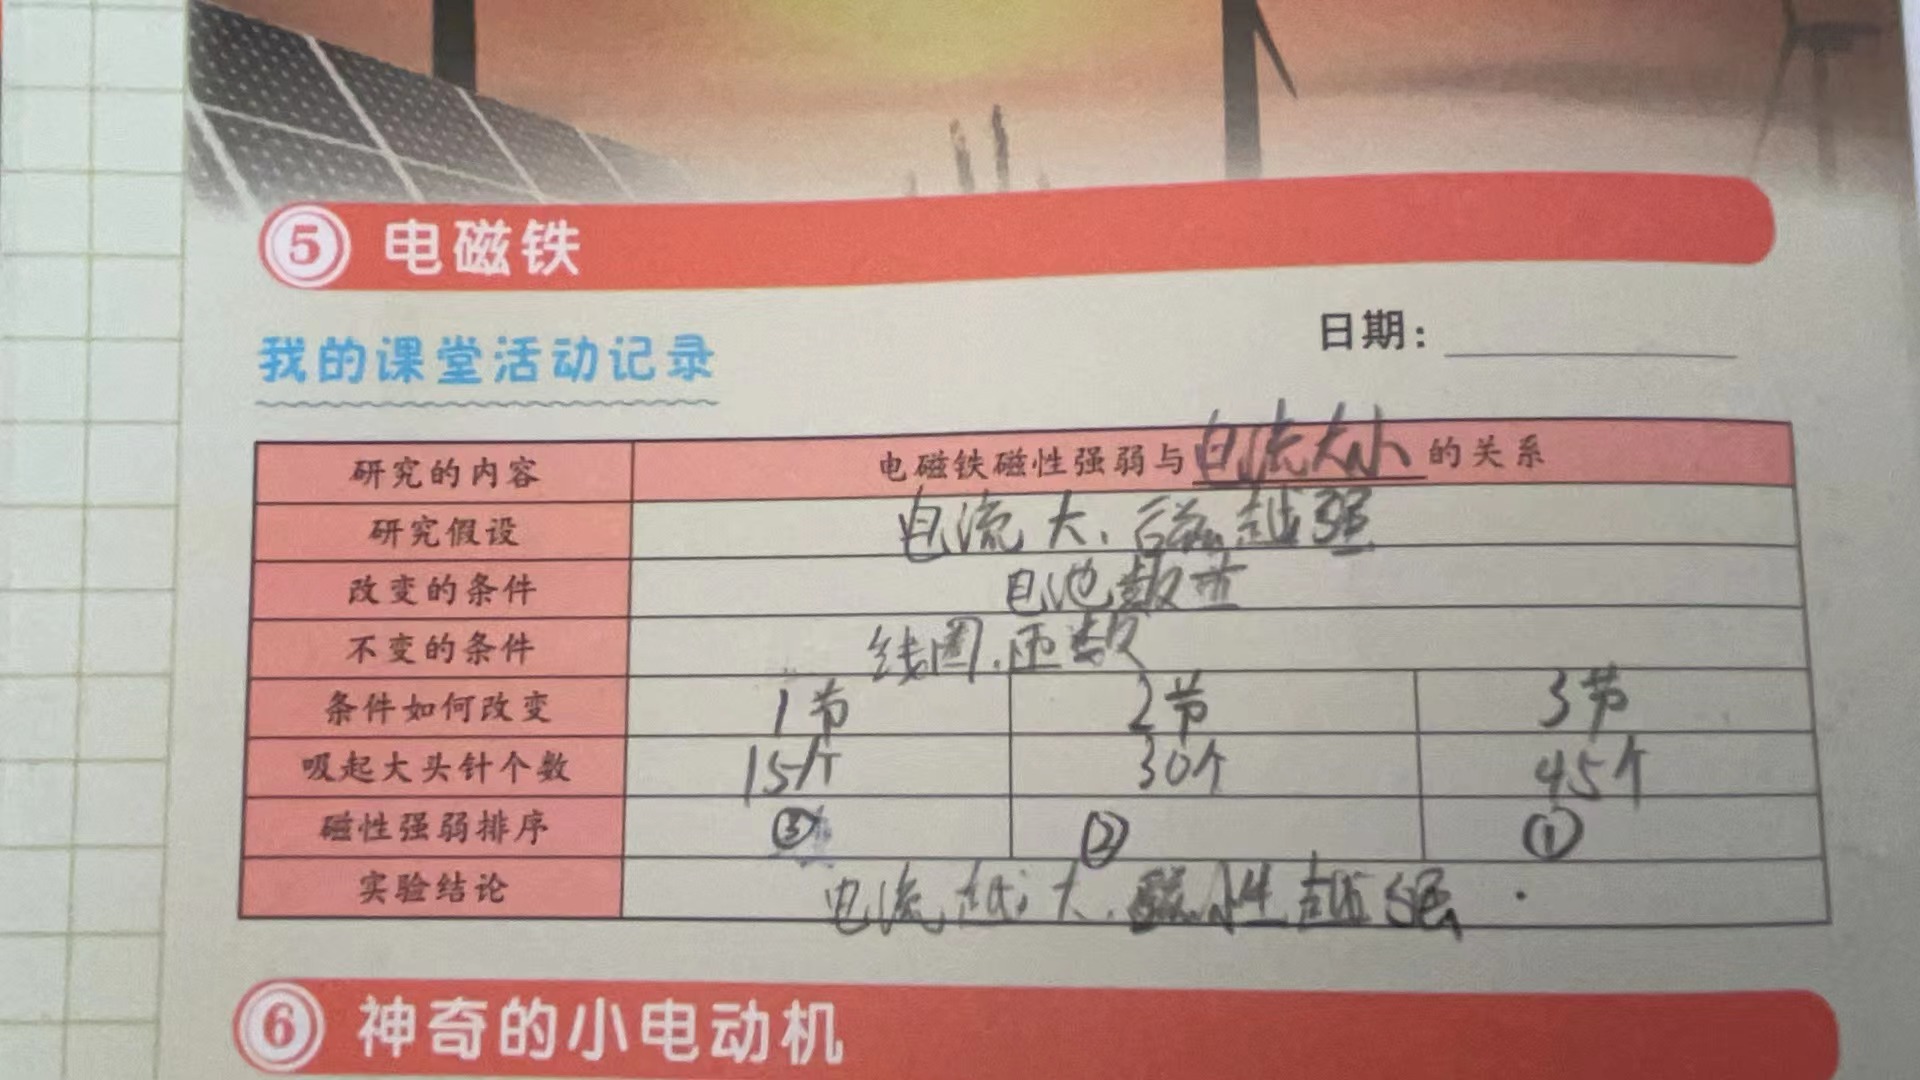 5 电磁铁
我的课堂活动记录
日期：
研究的内容 电磁铁磁性强弱与电流大小的关系
研究假设 电流大、磁越强
改变的条件 电池数量
不变的条件 线圈、匝数
条件如何改变 1节 2节 3节
吸起大头针个数 15个 30个 45个
磁性强弱排序 ③ ② ①
实验结论 电流越大、磁性越强.
6 神奇的小电动机